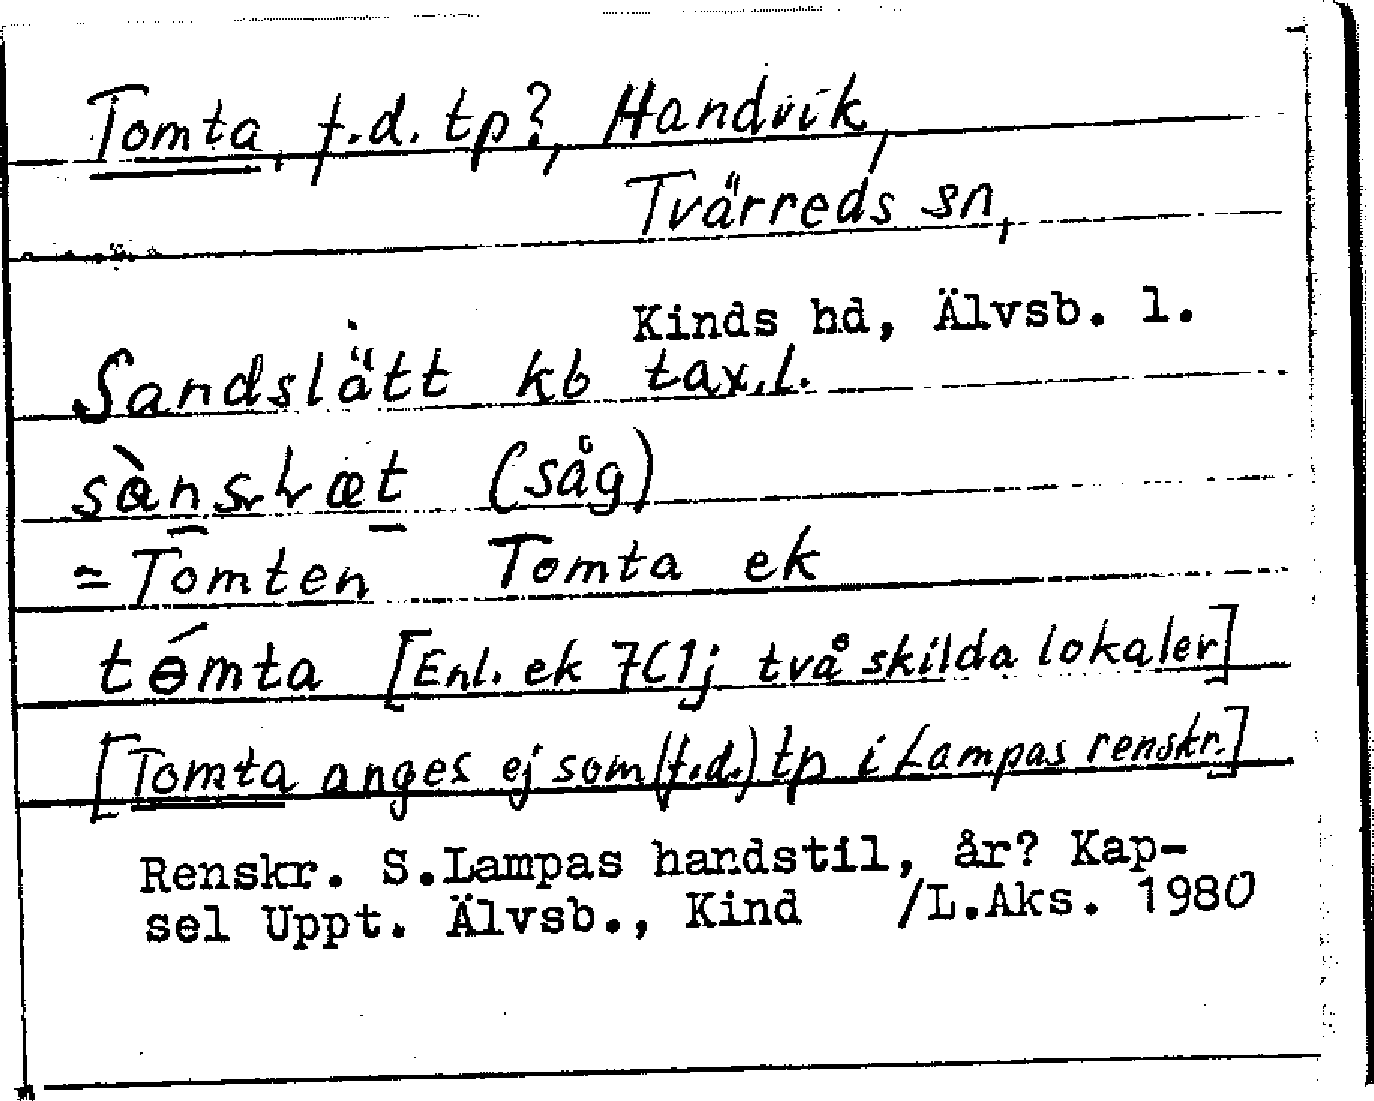 Tomta, f.d. tp?, Handvik,
Tvärreds sn,
Kinds hd, Älvsb. l.
Sandslätt kb tax.l.
(såg)
= Tomten Tomta ek
tómta [Enl. ek 7C1j två skilda lokaler]
[Tomta anges ej som (f.d.) tp i Lampas renskr.]
Renskr. S.Lampas handstil, år? Kap-
sel Uppt. Älvsb., Kind /L.Aks. 1980